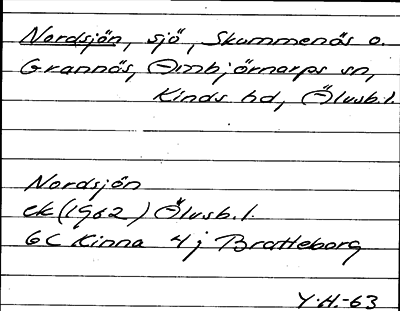 Nordsjön, sjö, Skummenäs o.
Grannäs, Ömbjörnarps sn,
Kinds hd, Älvsb. l.
Nordsjön
ek (1962) Älvsb. l.
6C Kinna 4 j Brattleborg
Y.H.-63